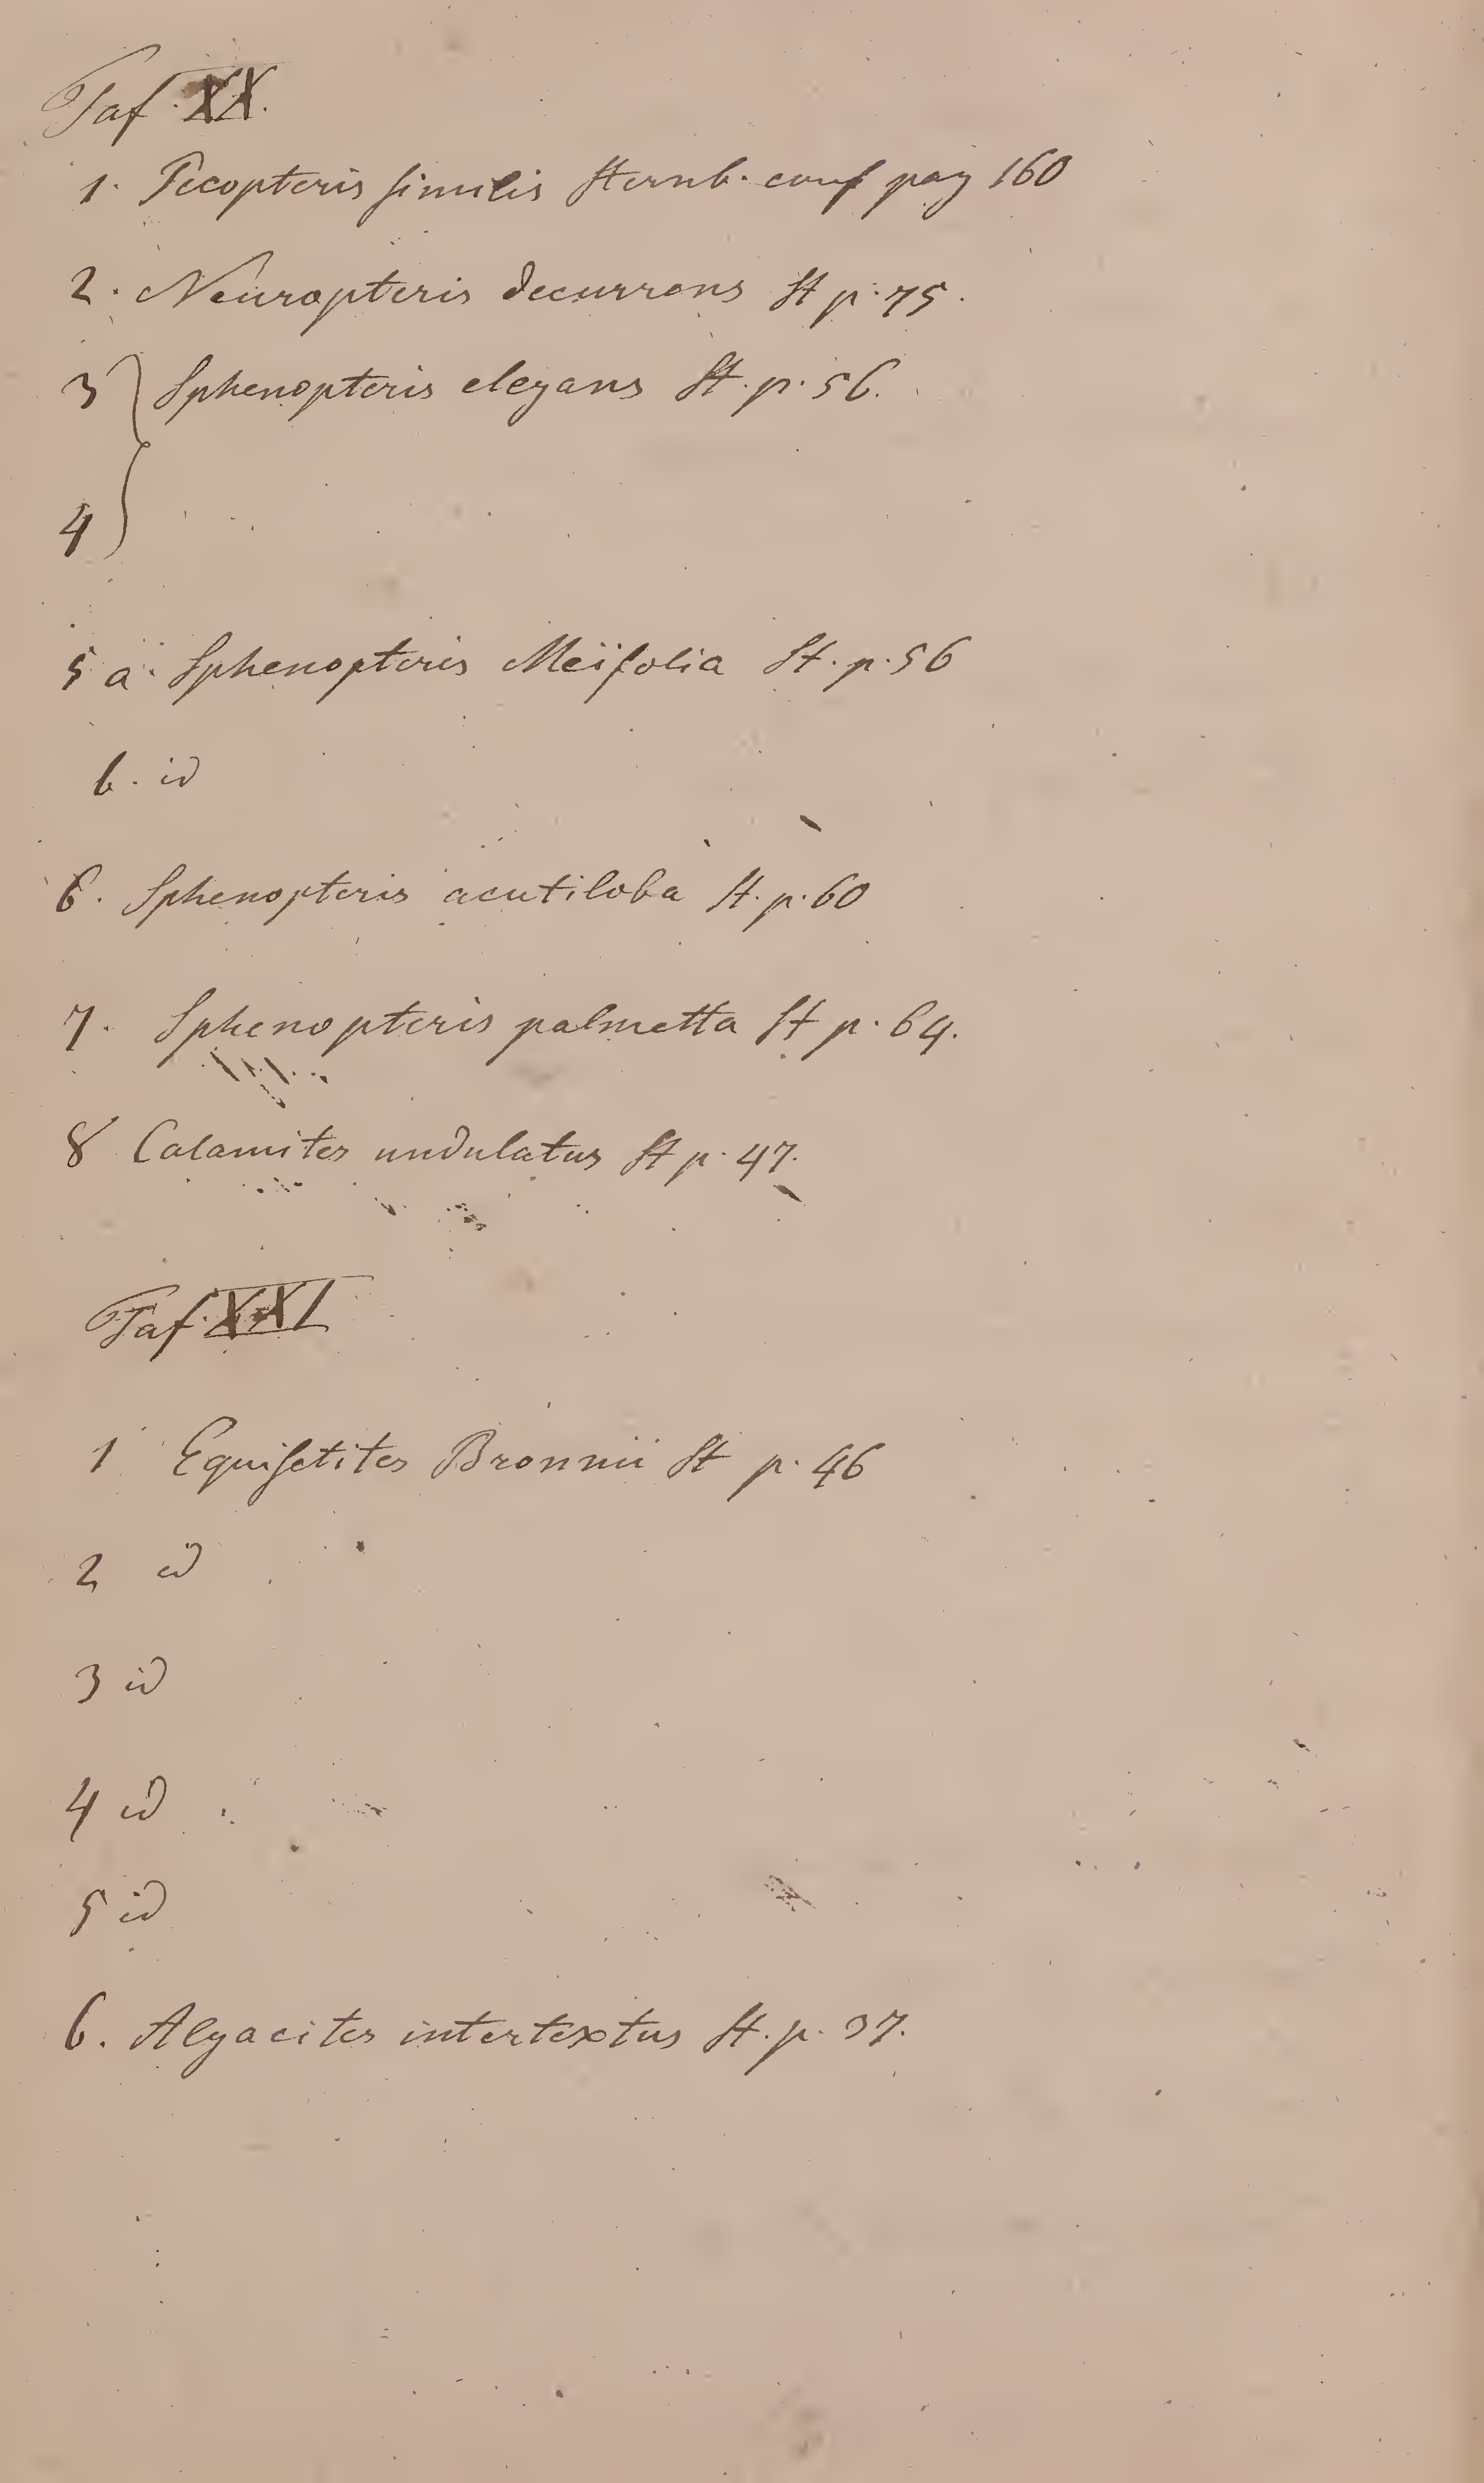 Taf. XX.
1. Pecopteris similis Sternb. conf pag 160
2. Neuropteris decurrens St p. 75.
3 } Sphenopteris elegans St. p. 56.
4
5 a. Sphenopteris Meïfolia St. p. 56
b. id
6. Sphenopteris acutiloba St. p. 60
7. Sphenopteris palmetta St p. 64.
8 Calamites undulatus St p. 47.
Taf. XXI
1 Equisetites Bronnii St p. 46
2 id
3 id
4 id
5 id
6. Algacites intertextus St. p. 37.